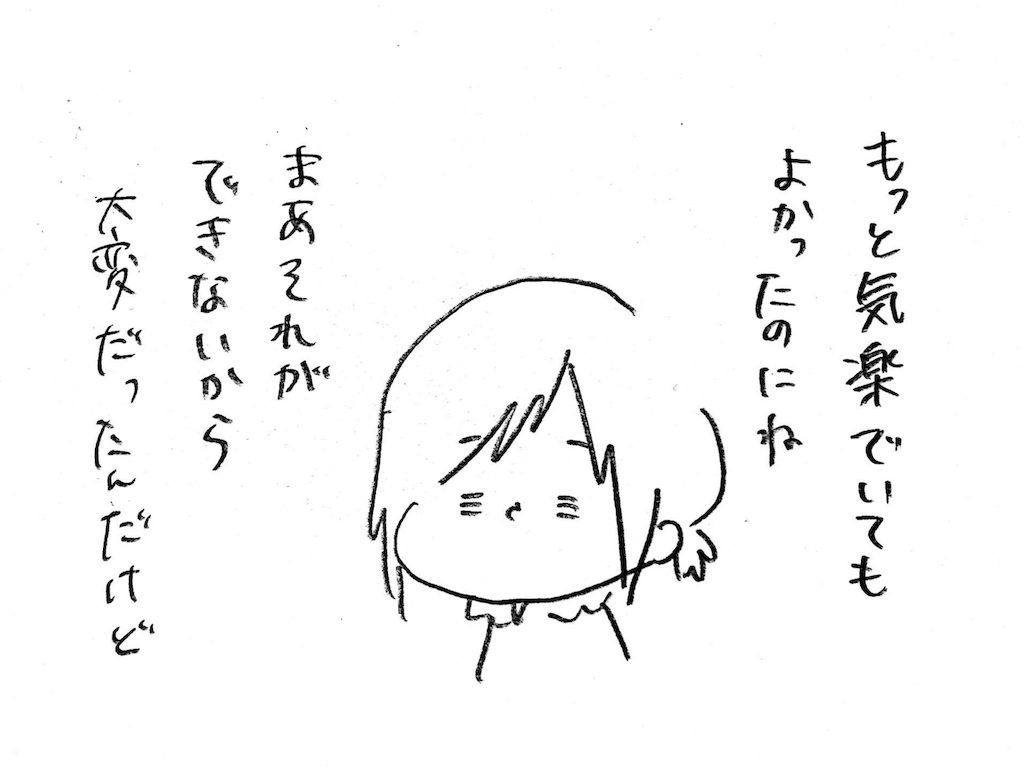 もっと気楽でいても
よかったのにね
まあそれが
できないから
大変だったんだけど